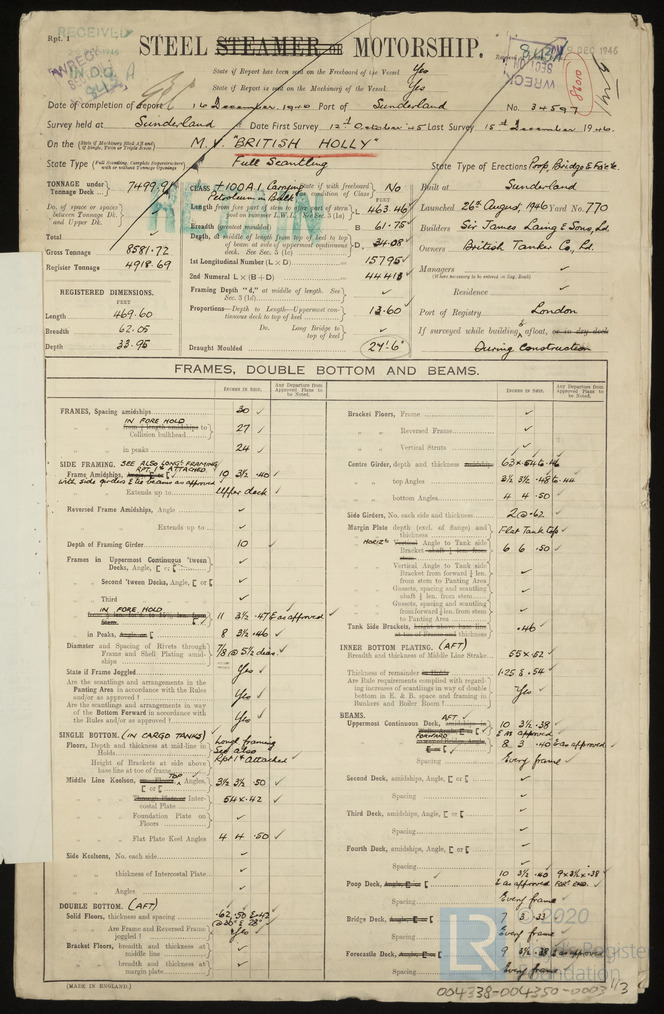 Rpt. 1
RECEIVED
STEEL STEAMER OR MOTORSHIP.
9 DEC 1946
State if Report has been sent on the Freeboard of the Vessel Yes
State if Report is sent on the Machinery of the Vessel Yes
Date of completion of Report 16 December 1946 Port of Sunderland No. 34597
Survey held at Sunderland Date First Survey 12th October '45 Last Survey 15th December 1946.
On the M.V. "BRITISH HOLLY"
State Type Full Scantling State Type of Erections Poop, Bridge & Fo'c'le
TONNAGE under Tonnage Deck 7499.96
Do. of space or spaces between Tonnage Dk. and Upper Dk.
Total
Gross Tonnage 8581.72
Register Tonnage 4918.69
REGISTERED DIMENSIONS.
FEET
Length 469.60
Breadth 62.05
Depth 33.95
CLASS +100A1 Carrying Petroleum in Bulk State if with freeboard condition of Class No
L 463.46
B 61.75
D 34.08
1st Longitudinal Number (L × D) 15795
2nd Numeral L × (B + D) 44413
Framing Depth "d," at middle of length. See Sec. 3 (1d)
Proportions—Depth to Length—Uppermost continuous deck to top of keel 13.60
Do. Long Bridge to top of keel
Draught Moulded 27'.6"
Built at Sunderland
Launched 26th August, 1946 Yard No. 770
Builders Sir James Laing & Sons, Ld.
Owners British Tanker Co., Ld.
Managers
Residence
Port of Registry London
If surveyed while building, afloat, or in dry dock
During Construction
FRAMES, DOUBLE BOTTOM AND BEAMS.
INCHES IN SHIP.
Any Departure from Approved Plans to be Noted.
INCHES IN SHIP.
Any Departure from Approved Plans to be Noted.
FRAMES, Spacing amidships 30
IN FORE HOLD
Collision bulkhead 27
in peaks 24
SIDE FRAMING. SEE ALSO LONGL FRAMING RPT. 1* ATTACHED
Frame Amidships, 10 3½ .40
with side girders & tie beams as approved
Extends up to Upper deck
Reversed Frame Amidships, Angle
Extends up to
Depth of Framing Girder 10
Frames in Uppermost Continuous 'tween Decks, Angle, [ or [
Second 'tween Decks, Angle, [ or [
Third
IN FORE HOLD
11 3½ .47 & as approved
in Peaks, 8 3½ .46
Diameter and Spacing of Rivets through Frame and Shell Plating amidships 7/8 @ 5½ dias.
State if Frame Joggled Yes
Are the scantlings and arrangements in the Panting Area in accordance with the Rules and/or as approved? Yes
Are the scantlings and arrangements in way of the Bottom Forward in accordance with the Rules and/or as approved? Yes
SINGLE BOTTOM. (IN CARGO TANKS)
Floors, Depth and thickness at mid-line in Holds Long'l framing See also Rpt 1* attached
Height of Brackets at side above base line at toe of frame
Middle Line Keelson, TOP Angles, [ or [ 3½ 3½ .50
Through Plate Intercostal Plate 54 × .42
Foundation Plate on Floors
Flat Plate Keel Angles 4 4 .50
Side Keelsons, No. each side
thickness of Intercostal Plate
Angles
DOUBLE BOTTOM. (AFT)
Solid Floors, thickness and spacing .62, .50 & .42
Are Frame and Reversed Frame joggled? Yes
Bracket Floors, breadth and thickness at middle line
breadth and thickness at margin plate
Bracket Floors, Frame
Reversed Frame
Vertical Struts
Centre Girder, depth and thickness 63 × .54 to .46
top Angles 3½ 3½ .48 to .44
bottom Angles 4 4 .50
Side Girders, No. each side and thickness 2 @ .62
Margin Plate depth (excl. of flange) and thickness Flat Tank top
HORIZL Angle to Tank side Bracket 6 6 .50
Vertical Angle to Tank side Bracket from forward ½ len. from stem to Panting Area
Gussets, spacing and scantling abaft ½ len. from stem
Gussets, spacing and scantling from forward ½ len. from stem to Panting Area
Tank Side Brackets, thickness .46
INNER BOTTOM PLATING. (AFT)
Breadth and thickness of Middle Line Strake 55 × .52
Thickness of remainder 1.25 & .54
Are Rule requirements complied with regarding increases of scantlings in way of double bottom in E. & B. space and framing in Bunkers and Boiler Room? Yes
BEAMS.
Uppermost Continuous Deck, AFT 10 3½ .38 & as approved
FORWARD 8 3 .40 & as approved
Spacing Every frame
Second Deck, amidships, Angle, [ or [
Spacing
Third Deck, amidships, Angle, [ or [
Spacing
Fourth Deck, amidships, Angle, [ or [
Spacing
Poop Deck, 10 3½ .40 & as approved 9 × 3½ × .38 FORD END.
Spacing Every frame
Bridge Deck, 7 3 .33
Spacing Every frame
Forecastle Deck, 9 3½ .38 & as approved
Spacing Every frame
(MADE IN ENGLAND.)
LR
2020
Lloyd's Register Foundation
004338-004350-0003 1/3